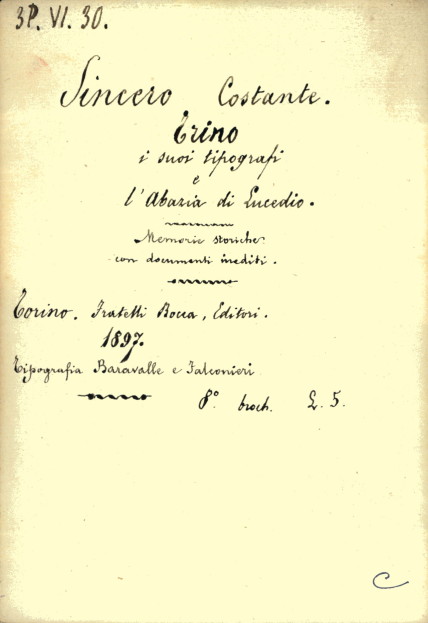 3P. VI. 30.
Sincero Costante.
Trino
i suoi tipografi
e
l'Abazia di Lucedio.
Memorie storiche
con documenti inediti.
Torino. Fratelli Bocca, Editori.
1897.
Tipografia Baravalle e Falconieri
8° broch. L. 5.
C